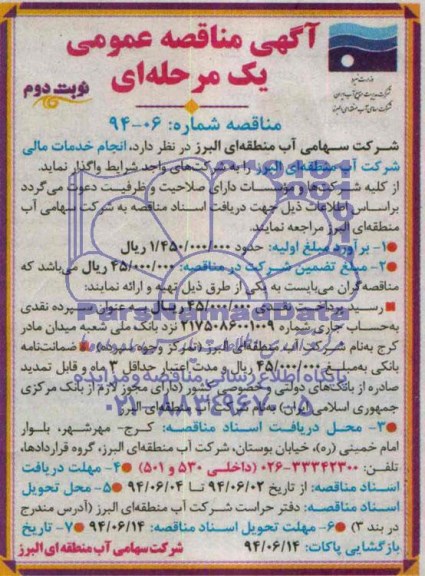 آگهی مناقصه عمومی
یک مرحله‌ای
نوبت دوم
وزارت نیرو
شرکت مدیریت منابع آب ایران
شرکت سهامی آب منطقه‌ای البرز
مناقصه شماره: ۰۶-۹۴
شـرکت سـهامی آب منطقه‌ای البرز در نظر دارد، انجام خدمات مالی
شرکت آب منطقه‌ای البرز را به شرکت‌های واجد شرایط واگذار نماید.
از کلیه شرکت‌ها و مؤسسات دارای صلاحیت و ظرفیت دعوت می‌گردد
براساس اطلاعات ذیل جهت دریافت اسناد مناقصه به شرکت سهامی آب
منطقه‌ای البرز مراجعه نمایند.
۱- برآورد مبلغ اولیه: حدود ۱/۴۵۰/۰۰۰/۰۰۰ ریال
۲- مبلغ تضمین شـرکت در مناقصه: ۴۵/۰۰۰/۰۰۰ ریال می‌باشد که
مناقصه‌گران می‌بایست به یکی از طرق ذیل تهیه و ارائه نمایند:
رسید پرداخت نقدی ۴۵/۰۰۰/۰۰۰ ریـال به عنوان سپرده نقدی
به‌حساب جاری شماره ۲۱۷۵۰۸۶۰۰۱۰۰۹ نزد بانک ملی شعبه میدان مادر
کرج به‌نام شرکت آب منطقه‌ای البرز (تمرکز وجوه سپرده) ضمانت‌نامه
بانکی به‌مبلغ ۴۵/۰۰۰/۰۰۰ ریال و مدت اعتبار حداقل ۳ ماه و قابل تمدید
صادره از بانک‌های دولتی و خصوصی کشور (دارای مجوز لازم از بانک مرکزی
جمهوری اسلامی ایران) به‌نام شرکت آب منطقه‌ای البرز
۳- محـل دریافت اسـناد مناقصـه: کـرج- مهرشـهر، بلـوار
امام خمینی (ره)، خیابان بوستان، شرکت آب منطقه‌ای البرز، گروه قراردادها،
تلفن: ۳۳۳۴۲۳۰۰-۰۲۶ (داخلی ۵۳۰ و ۵۰۱) ۴- مهلت دریافت
اسـناد مناقصه: از تاریخ ۹۴/۰۶/۰۲ تـا ۹۴/۰۶/۰۴ ۵- محل تحویل
اسناد مناقصه: دفتر حراست شـرکت آب منطقه‌ای البرز (آدرس مندرج
در بند ۳) ۶- مهلت تحویل اسـناد مناقصه: ۹۴/۰۶/۱۴ ۷- تاریخ
بازگشایی پاکات: ۹۴/۰۶/۱۴
شرکت سهامی آب منطقه‌ای البرز
ParsNamadData
پایگاه اطلاع رسانی مناقصه و مزایده
۰۲۱-۸۸۳۴۹۶۷۰-۵